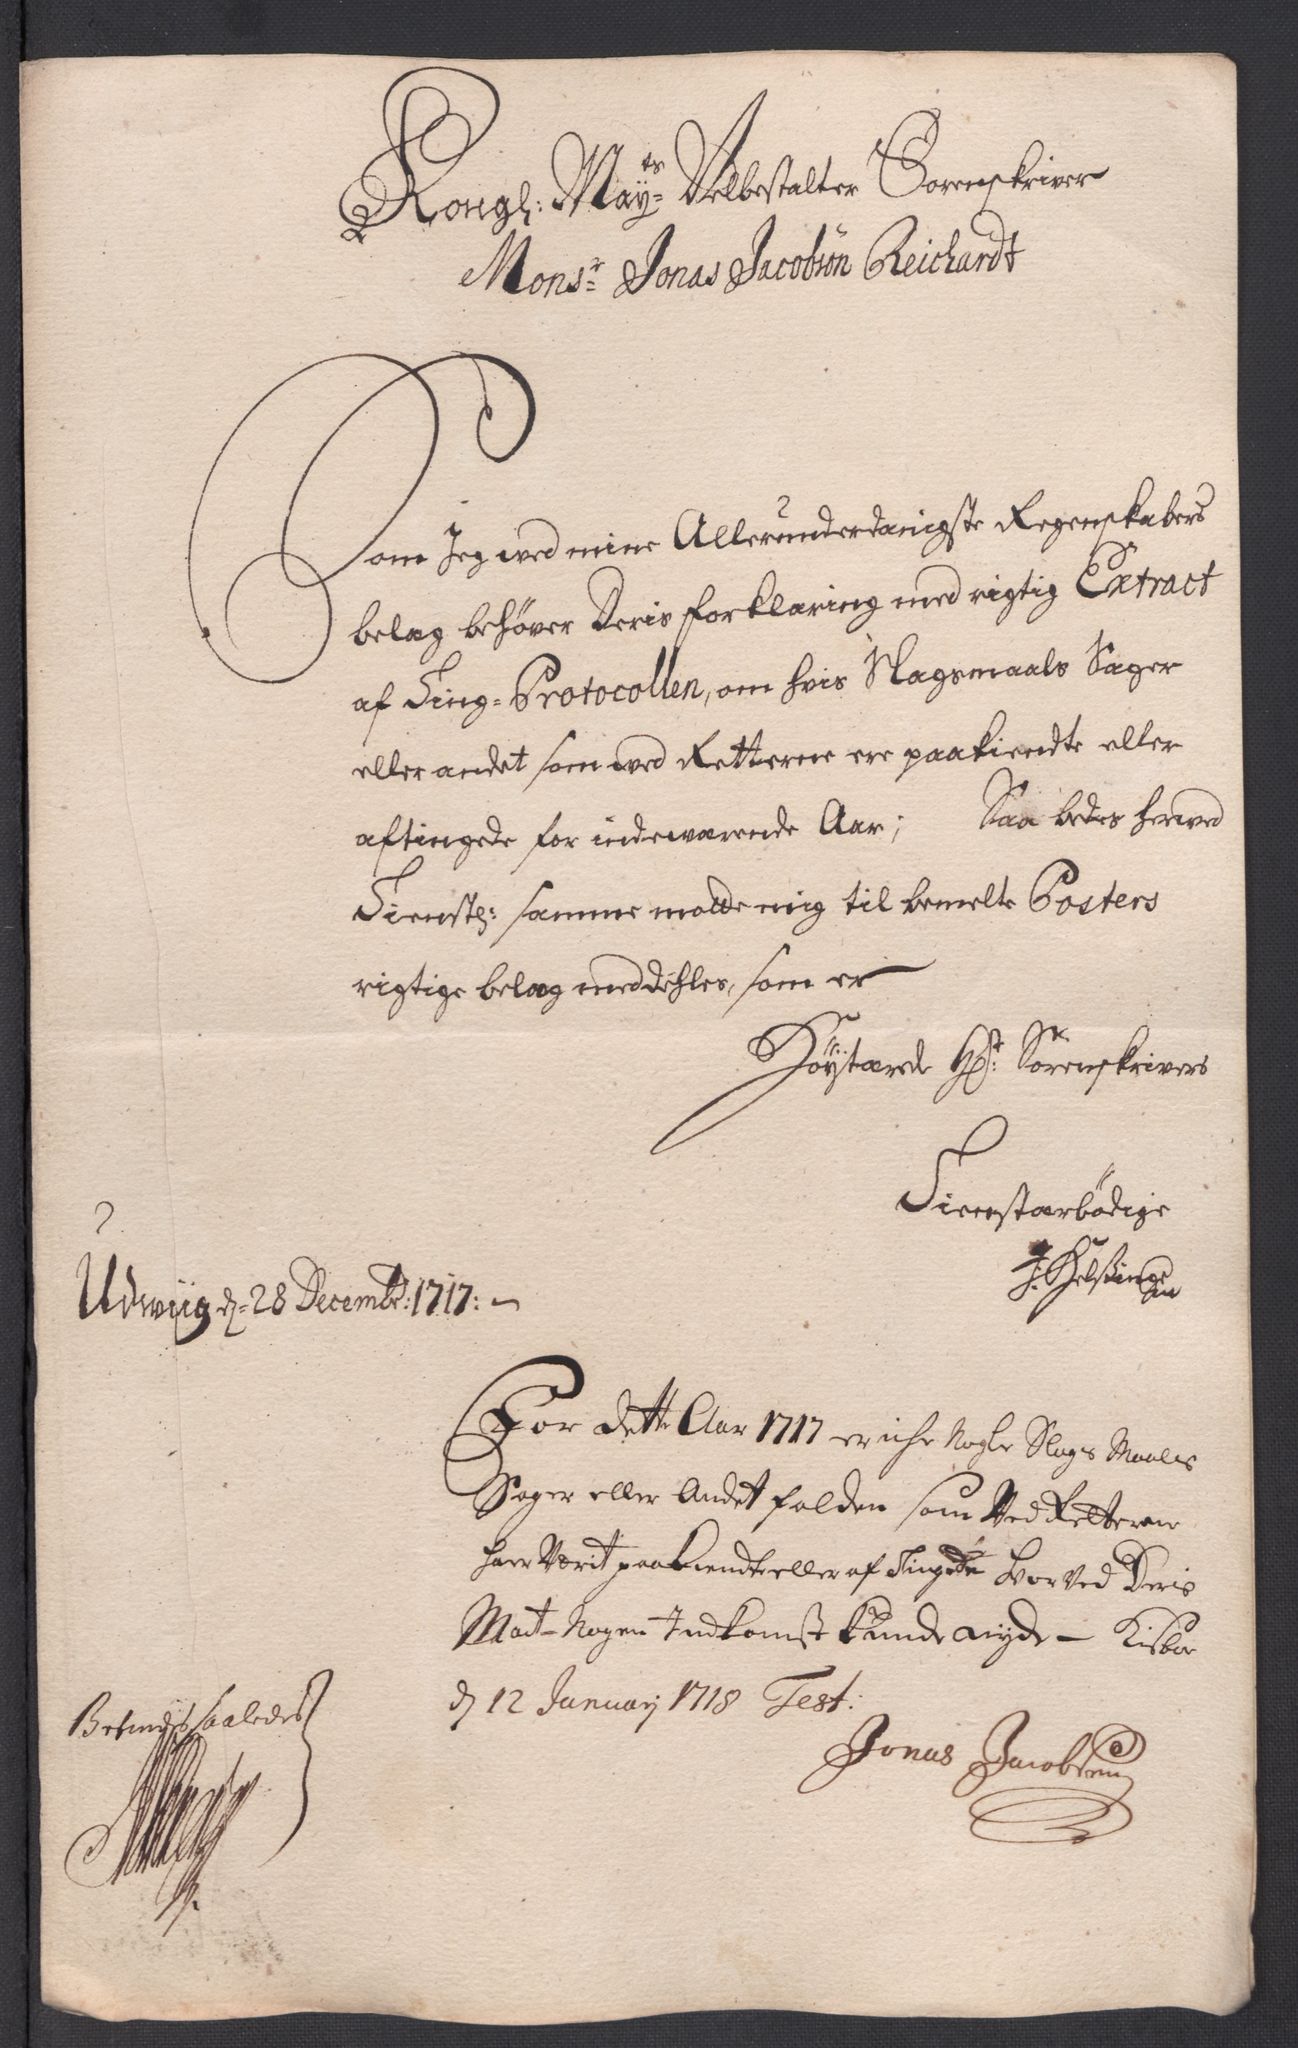 Kongl: May:ts Velbestalter Sorenskriver
Mons:r Jonas Jacobsön Reichardt
Som Jeg ved mine Allerunderdanigste Regenskabers
belæg behøver Deris forklaring med rigtig Extract
af Ting-Protocollen, om hvis Slagsmaals Sager
eller andet som ved Retterne ere paakiendte eller
aftingede for indeværende Aar; Saa bedes herved
Tienstl: samme motte mig til bemelte Posters
rigtige belæg meddehles, som er
Høystærede Hr: Sorenskrivers
Tienstærbödige
Udwiig d: 28 Decembr: 1717:
For dette Aar 1717 er iche Nogle Slags Maales
Sager eller Andet falden som Ved Retterne
haer Verit paakiendte eller af Tingede hvor Ved Deris
Mayt Nogen Indkomst kunde nyde -
d 12 January 1718 Test:
Jonas Jacobsen
Befindes saaledes